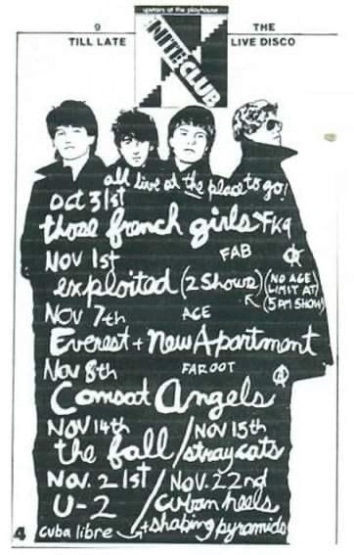 upstairs at the playhouse
9 TILL LATE
NITE CLUB
THE LIVE DISCO
all live at the place to go!
Oct 31st
those french girls FKA
FAB
NOV 1st
exploited (2 shows) (NO AGE LIMIT AT 5PM SHOW)
NOV 7th ACE
Everest + New Apartment
Nov 8th FAROOT
Comsat Angels
Nov 14th / Nov 15th
the fall / stray cats
Nov. 21st / Nov. 22nd
U-2 / cuban heels
4 cuba libre + shaking pyramids